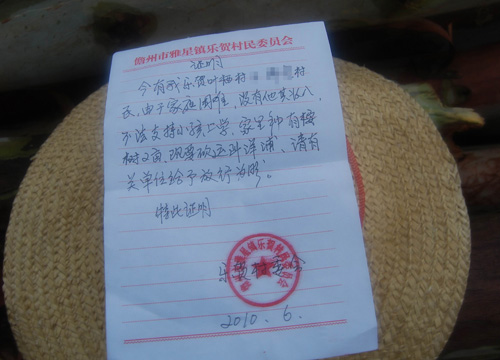 儋州市雅星镇乐贺村民委员会
证明
今有我乐贺叶栖村 村
民,由于家庭困难,没有他其收入
不法支持小孩上学,家里种有桉
树2亩,现要砍运到洋浦,请有
关单位给予放行为盼。
特此证明
乐贺村委会
2010.6.